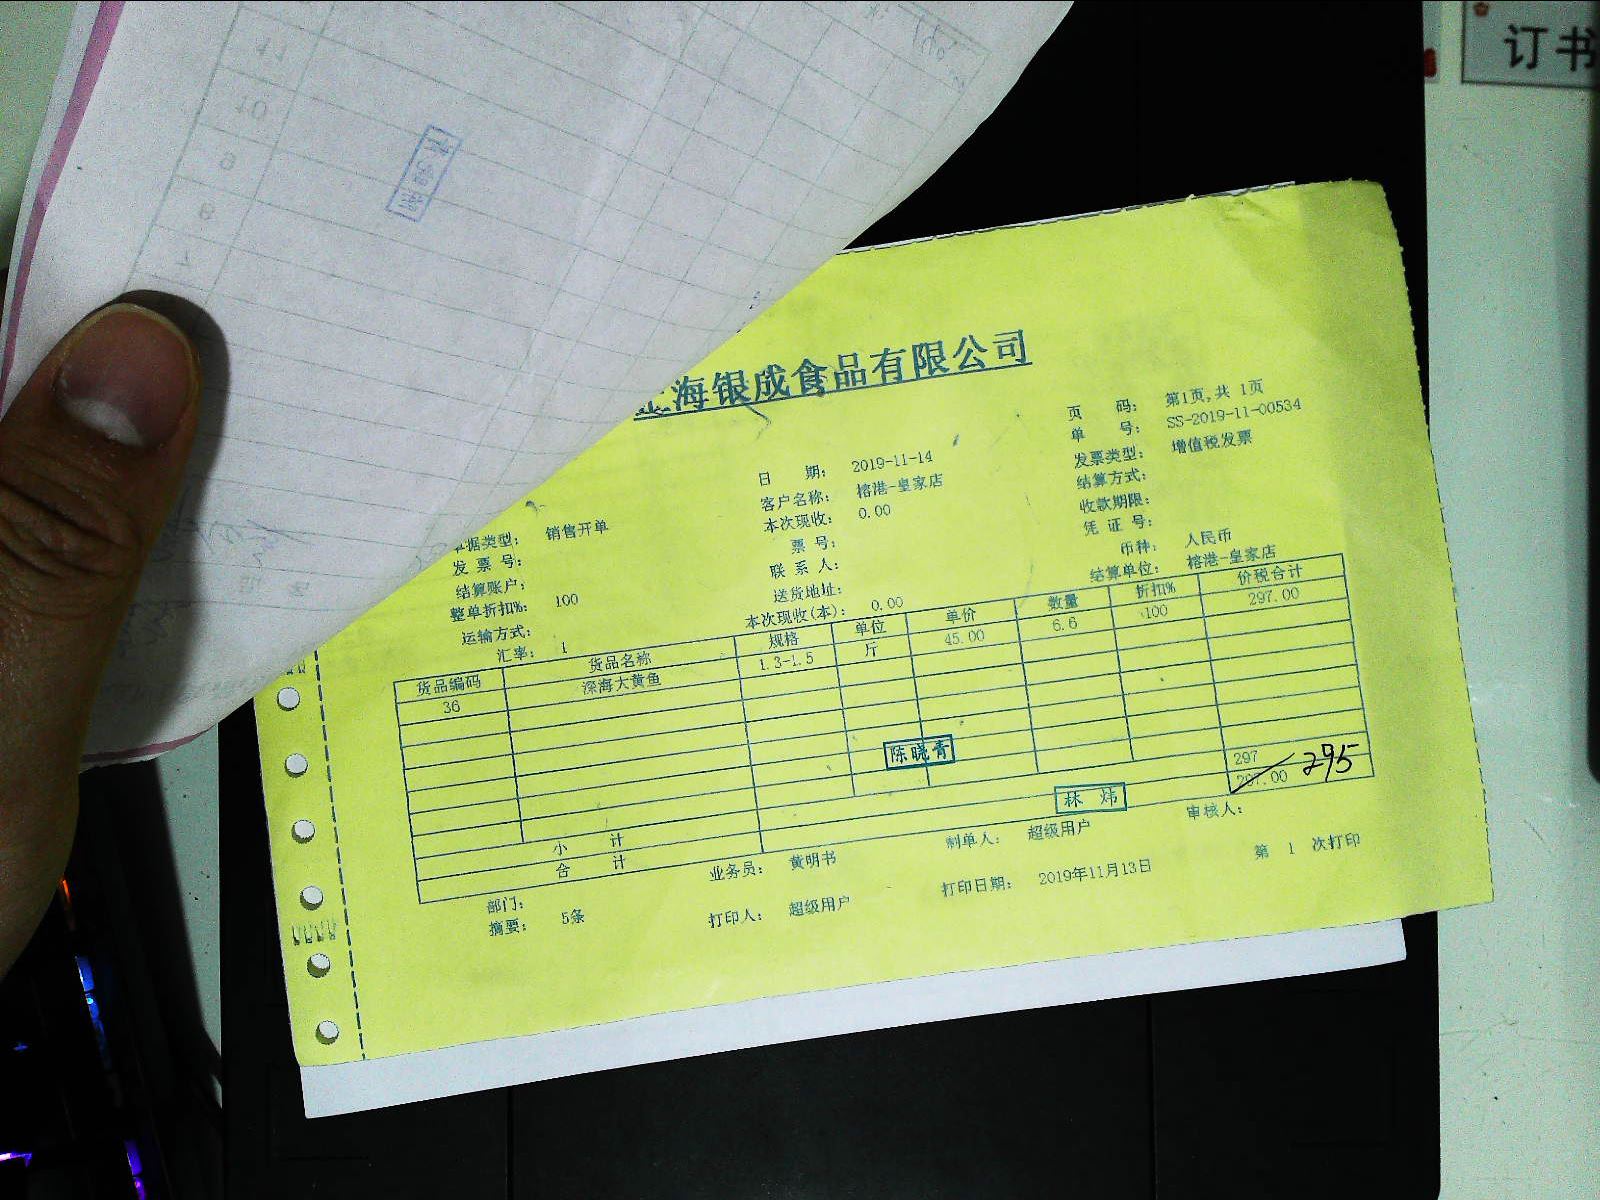 订书
海银成食品有限公司
页 码: 第1页,共 1页
单 号: SS-2019-11-00534
日 期: 2019-11-14
发票类型: 增值税发票
客户名称: 榕港-皇家店
结算方式:
据类型: 销售开单
本次现收: 0.00
收款期限:
发 票 号:
票 号:
凭 证 号:
结算账户:
联 系 人:
币种: 人民币
整单折扣%: 100
送货地址:
结算单位: 榕港-皇家店
运输方式:
本次现收(本): 0.00
汇率: 1
货品编码 货品名称 规格 单位 单价 数量 折扣% 价税合计
36 深海大黄鱼 1.3-1.5 斤 45.00 6.6 100 297.00
陈晓青
小 计 297
合 计 297.00 295
林 炜
部门: 业务员: 黄明书 制单人: 超级用户 审核人:
摘要: 5条 打印人: 超级用户 打印日期: 2019年11月13日 第 1 次打印